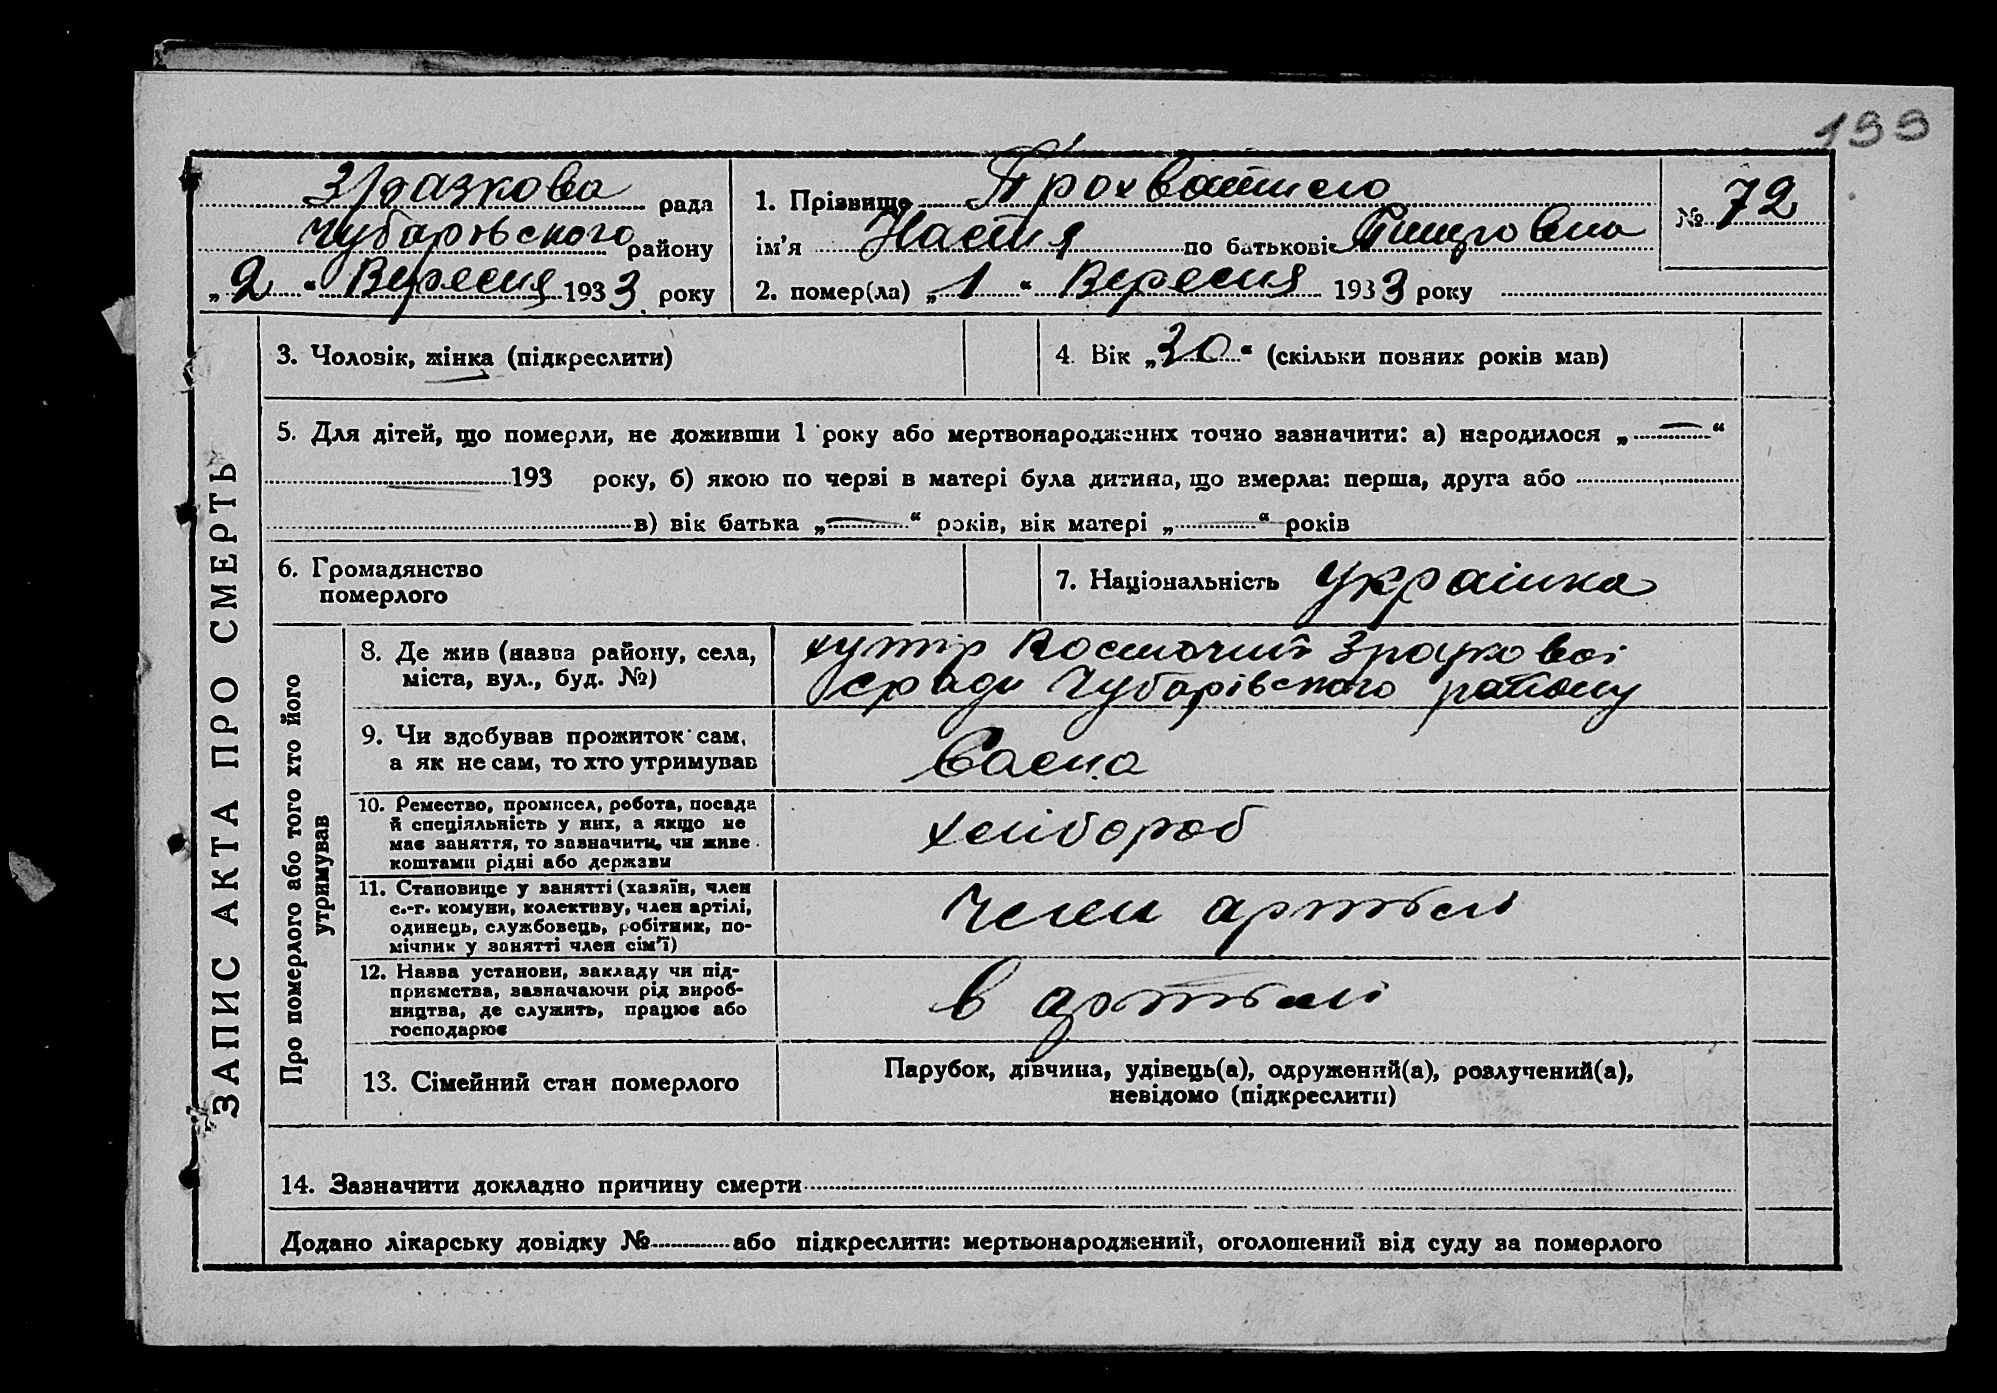 133
Зразкова рада
Чубарівського району
„2“ Вересня 1933 року
1. Прізвище Прохватило
ім'я Настя по батькові
№ 72
2. помер(ла) „1“ Вересня 1933 року
ЗАПИС АКТА ПРО СМЕРТЬ
3. Чоловік, жінка (підкреслити)
4. Вік „30“ (скільки повних років мав)
5. Для дітей, що померли, не доживши 1 року або мертвонароджених точно зазначити: а) народилося „—“
193 року, б) якою по черзі в матері була дитина, що вмерла: перша, друга або
в) вік батька „—“ років, вік матері „—“ років
6. Громадянство
померлого
7. Національність Українка
Про померлого або того хто його
утримував
8. Де жив (назва району, села,
міста, вул., буд. №)
хутір Восточний Зразкової
с ради Чубарівського району
9. Чи здобував прожиток сам,
а як не сам, то хто утримував
Сама
10. Ремество, промисел, робота, посада
й спеціяльність у них, а якщо не
має заняття, то зазначити, чи живе
коштами рідні або держави
хлібороб
11. Становище у занятті (хазяїн, член
с.-г. комуни, колективу, член артілі,
одинець, службовець, робітник, по-
мічник у занятті член сім'ї)
Член артьелі
12. Назва установи, закладу чи під-
приємства, зазначаючи рід вироб-
ництва, де служить, працює або
господарює
в артьелі
13. Сімейний стан померлого
Парубок, дівчина, удівець(а), одружений(а), розлучений(а),
невідомо (підкреслити)
14. Зазначити докладно причину смерти
Додано лікарську довідку № або підкреслити: мертвонароджений, оголошений від суду за померлого